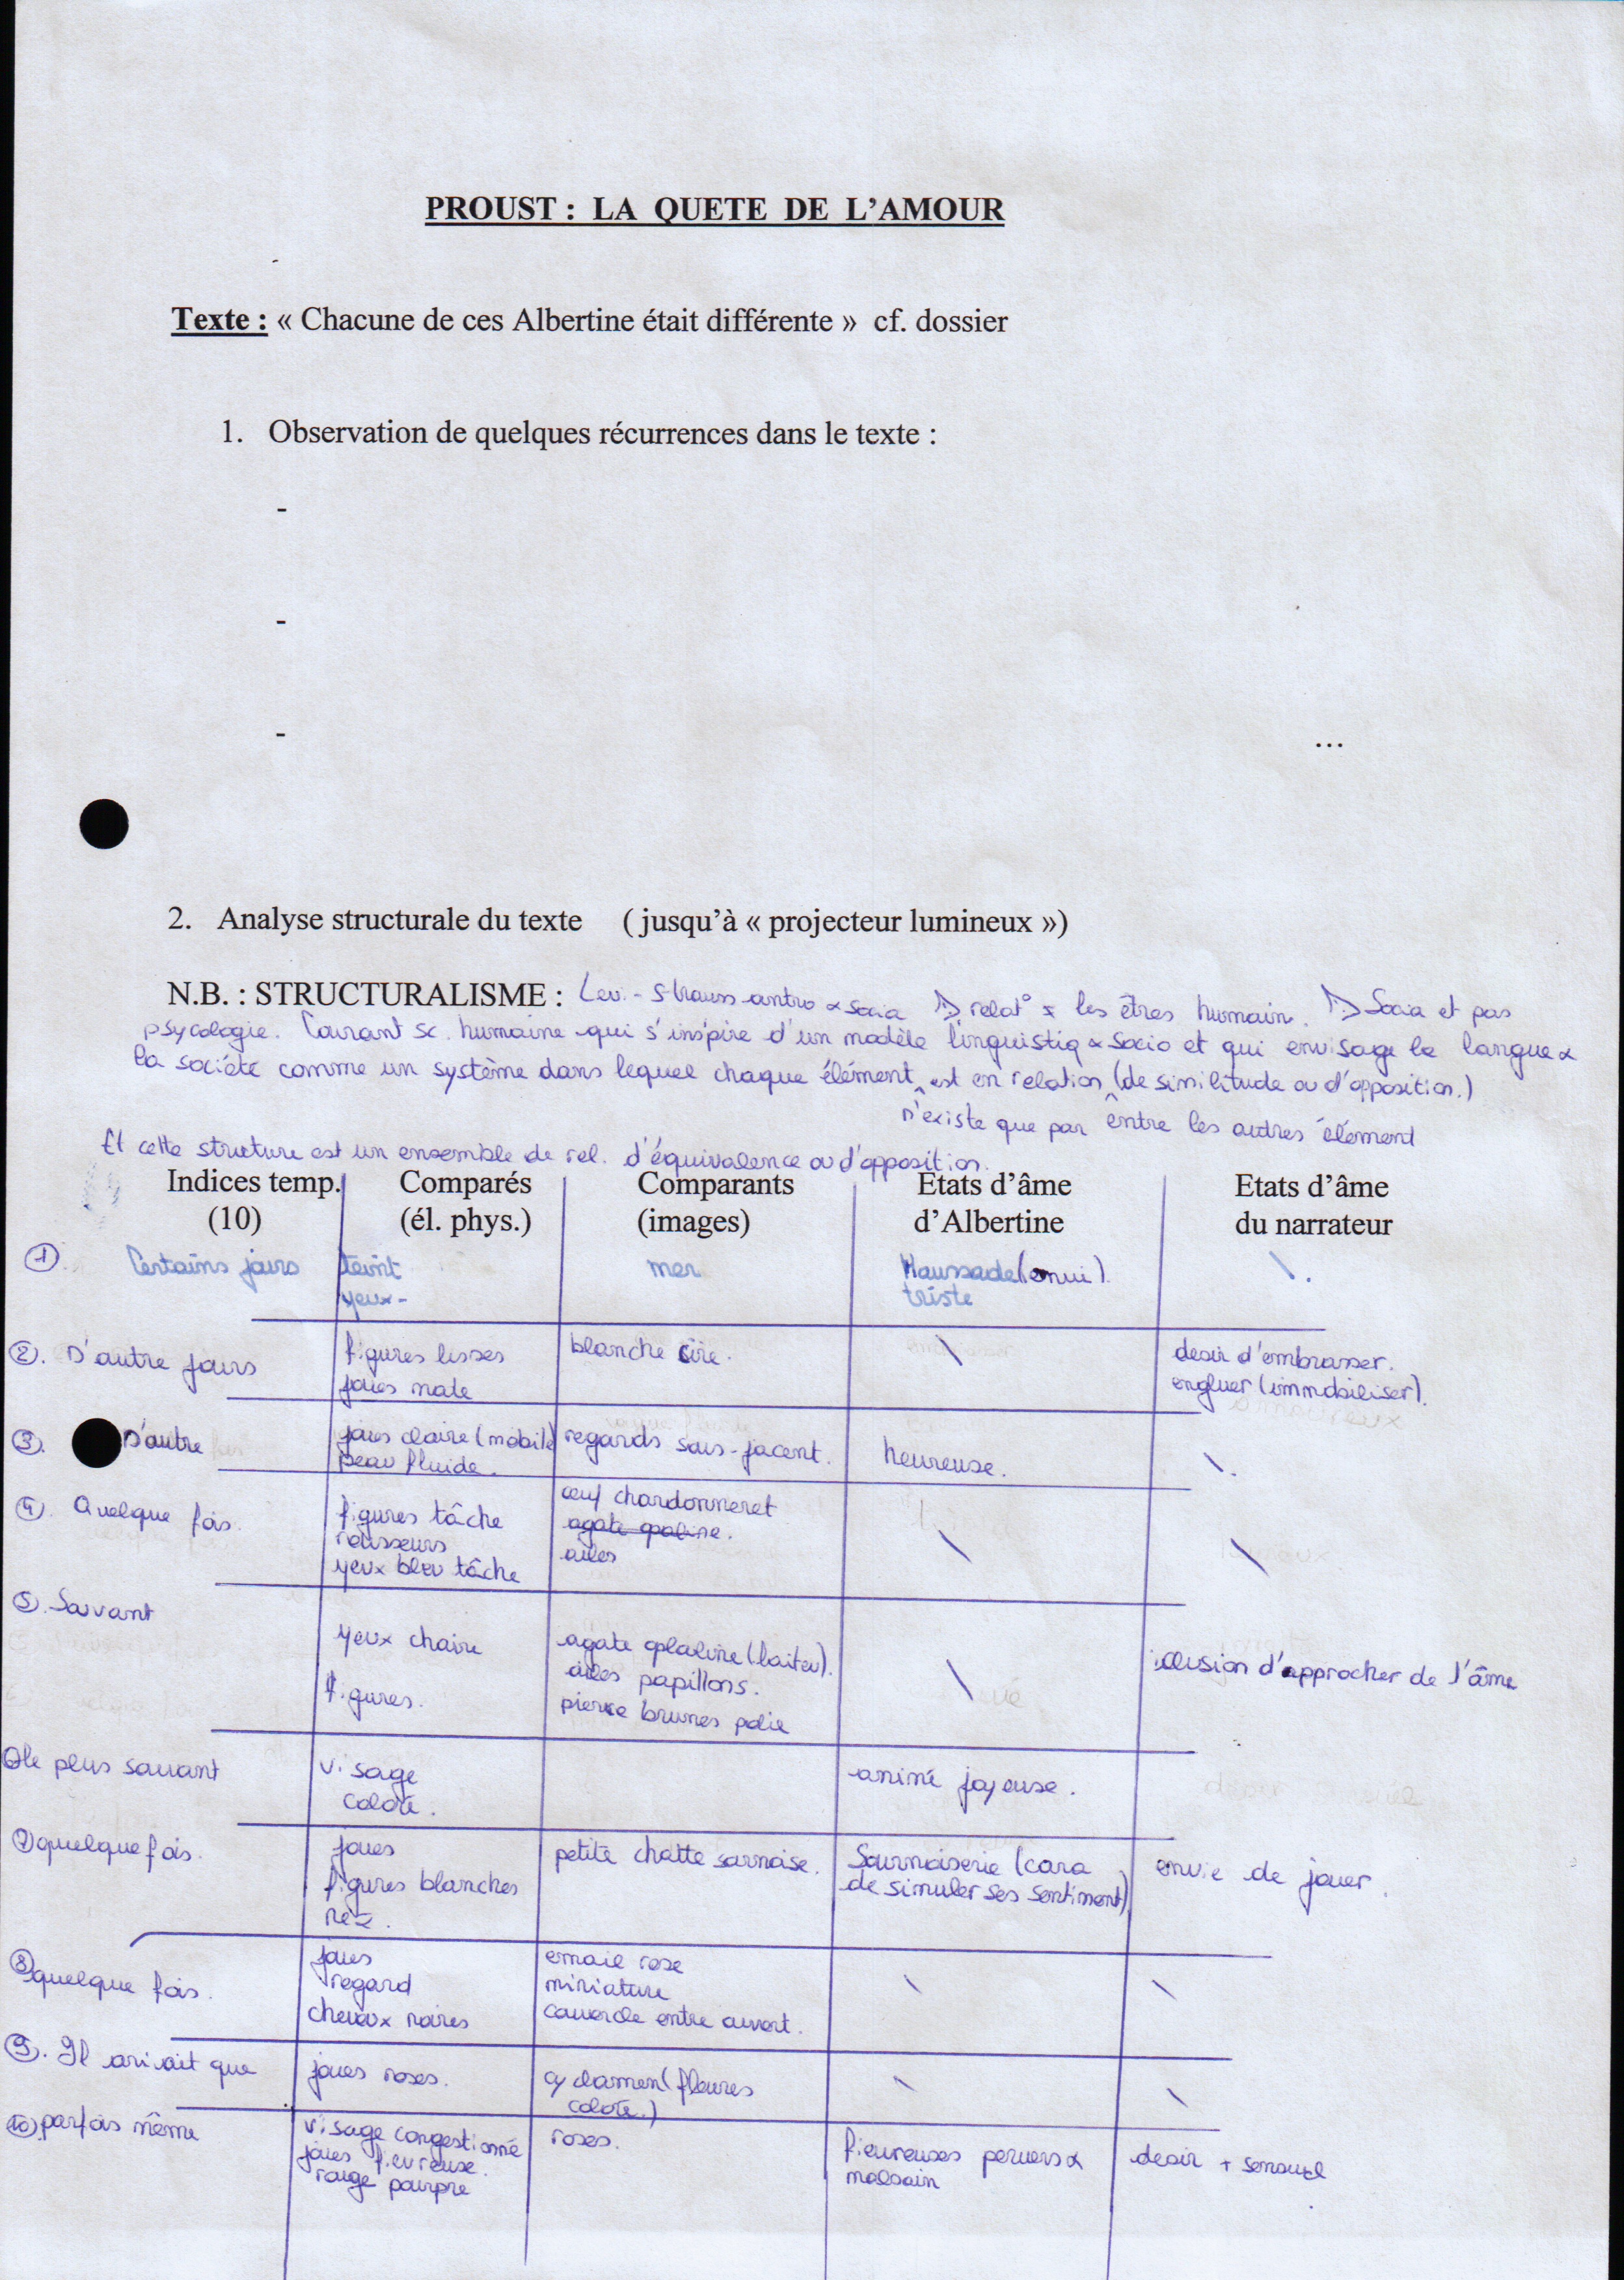 PROUST : LA QUETE DE L'AMOUR
Texte : « Chacune de ces Albertine était différente » cf. dossier
1. Observation de quelques récurrences dans le texte :
-
-
- …
2. Analyse structurale du texte ( jusqu'à « projecteur lumineux »)
N.B. : STRUCTURALISME : Levi-Strauss antro & socio relat° les êtres humain. Socio et pas
psycologie. Courant sc. humaine qui s'inspire d'un modèle linguistiq & socio et qui envisage la langue &
la société comme un système dans lequel chaque élément est en relation (de similitude ou d'opposition.)
n'existe que par entre les autres élément
Et cette structure est un ensemble de rel. d'équivalence ou d'opposition.
Indices temp. Comparés Comparants Etats d'âme Etats d'âme
(10) (él. phys.) (images) d'Albertine du narrateur
1 Certains jours teint mer Maussade (ennui). \.
yeux- triste
2. D'autre jours figures lisses blanche cire. \ desir d'embrasser.
joues mate engluer (immobiliser).
3. D'autre joues claire (mobile) regards sous-jacent. heureuse. \.
peau fluide.
4. Quelque fois. figures tâche œuf chardonneret \ \
rousseurs agate opaline.
yeux bleu tâche ailes
5. Souvant
yeux chaire agate oplaline (laiteu). \ illusion d'approcher de l'âme
figures. ailes papillons.
pierre brunes polie
le plus souvant visage animé joyeuse.
coloré.
7 quelque fois. joues petite chatte sournoise. Sournoiserie (cara envie de jouer.
figures blanches de simuler ses sentiment)
nez.
8 quelque fois. joues emaie rose \ \
regard miniature
cheveux noires couvercle entre ouvert.
9. Il arivait que joues roses. cyclamen (fleures \ \
coloré.)
10. parfois même visage congestionné roses. fieureuses pervers & desir + sensuel
joues fievreuse. malsain
rouge pourpre